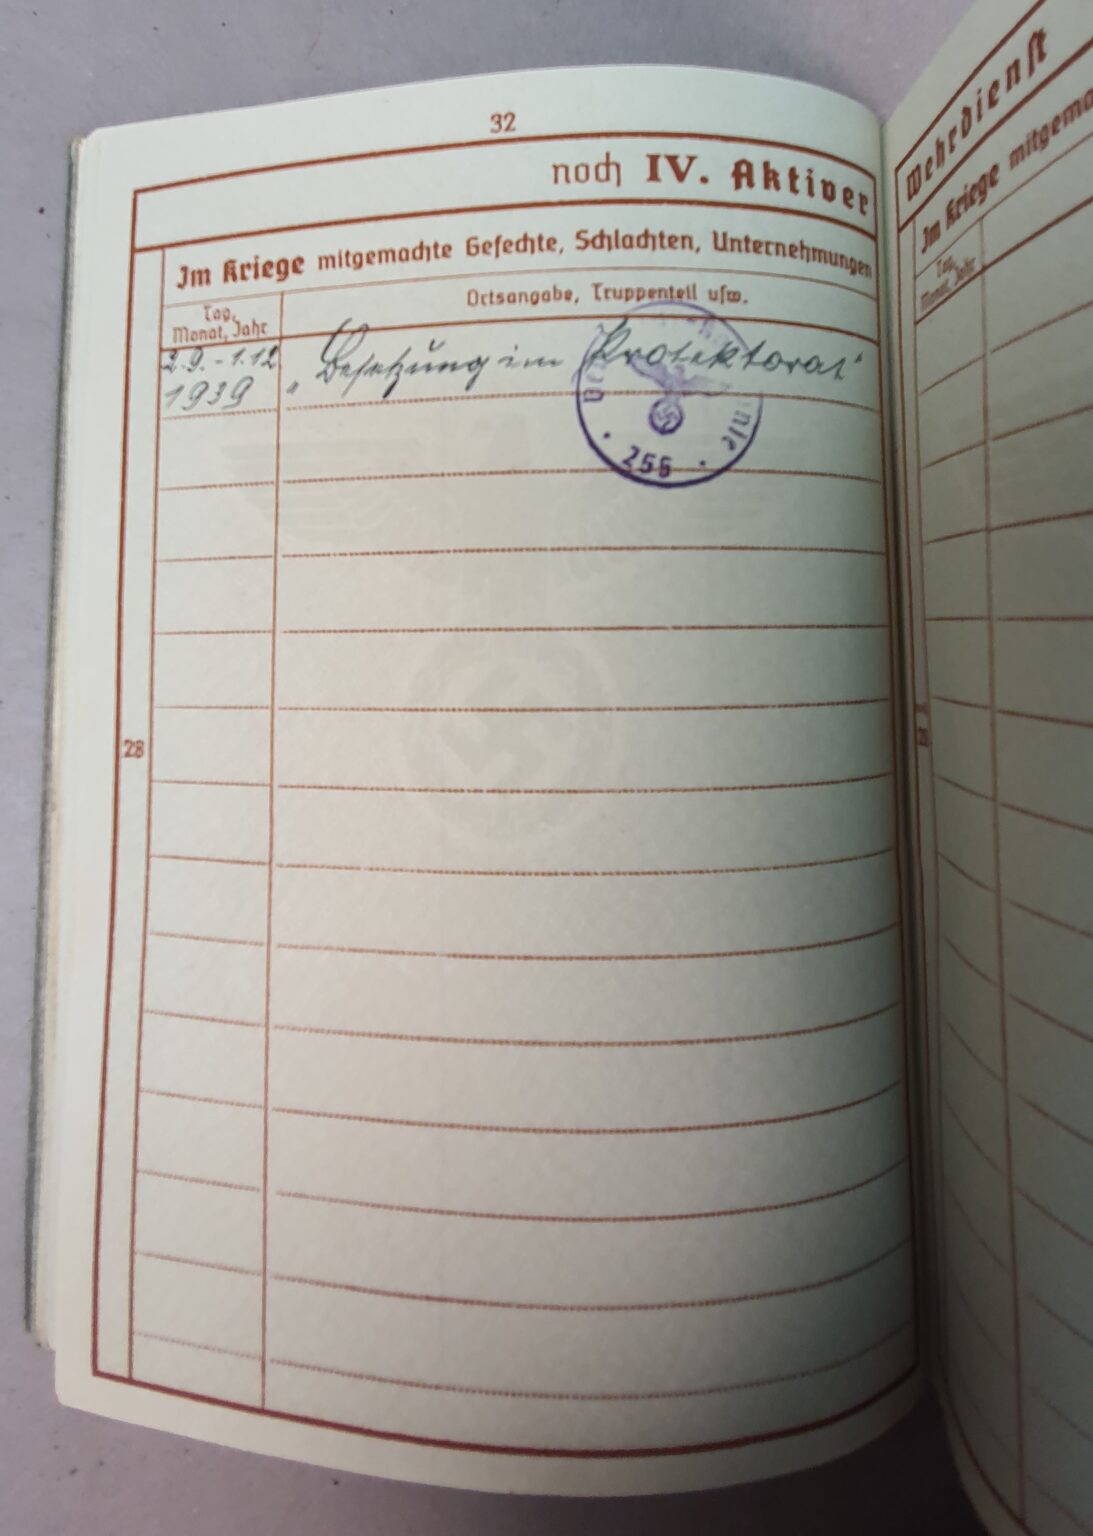 32
noch IV. Aktiver
Im Kriege mitgemachte Gefechte, Schlachten, Unternehmungen
Tag, Monat, Jahr
Ortsangabe, Truppenteil usw.
2.9. - 1.12. 1939
"Besetzung im Protektorat"
256
28
Wehrdienst
Im Kriege mitgema
Tag, Monat, Jahr